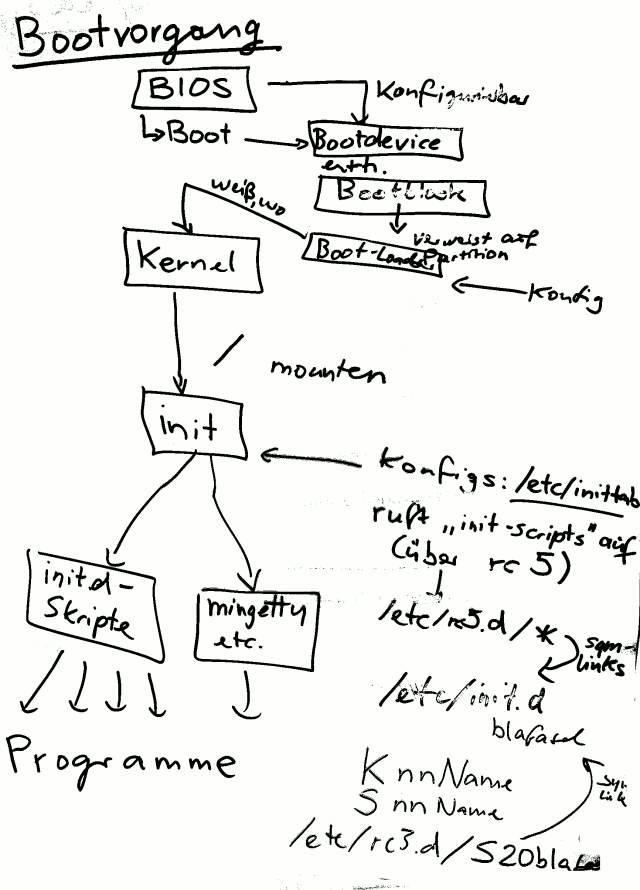 Bootvorgang
BIOS
Konfigurierbar
↳Boot
Bootdevice
enth.
Bootblock
weiß, wo
verweist auf
Partition
Boot-Loader
Kernel
Konfig
/ mounten
init
Konfigs: /etc/inittab
ruft „init-scripts" auf
(über rc 5)
init.d-
Skripte
mingetty
etc.
/etc/rc5.d/*
sym-
links
/etc/init.d
blafasel
Programme
K nnName
S nnName
sym
link
/etc/rc3.d/S20blafas